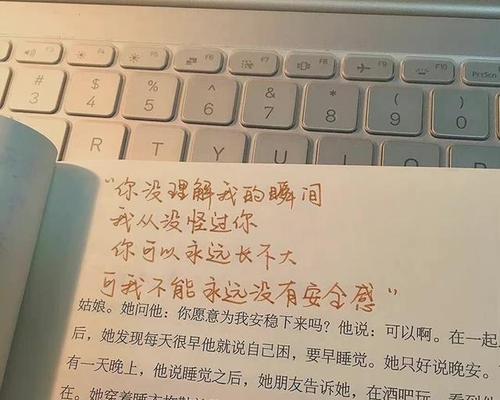 F3 F4 F5 F6 F7 F8 F9 F10 PrtScn
# $ % ^ & * ( )
3 4 5 6 7 8 9 0
R T Y
“你没理解我的瞬间
我从没怪过你
你可以永远长不大
可我不能永远没有安全感”
姑娘。她问他：你愿意为我安稳下来吗？他说：可以啊。在一起
后，她发现每天很早他就说自己困，要早睡觉。她只好说晚安。
有一天晚上，他说睡觉之后，她朋友告诉她，在酒吧玩，看到他
在。她穿着睡衣